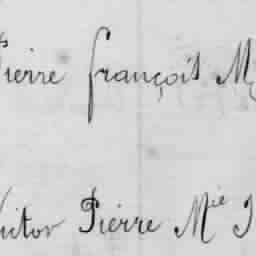 Pierre françois M
Victor Pierre Mie J